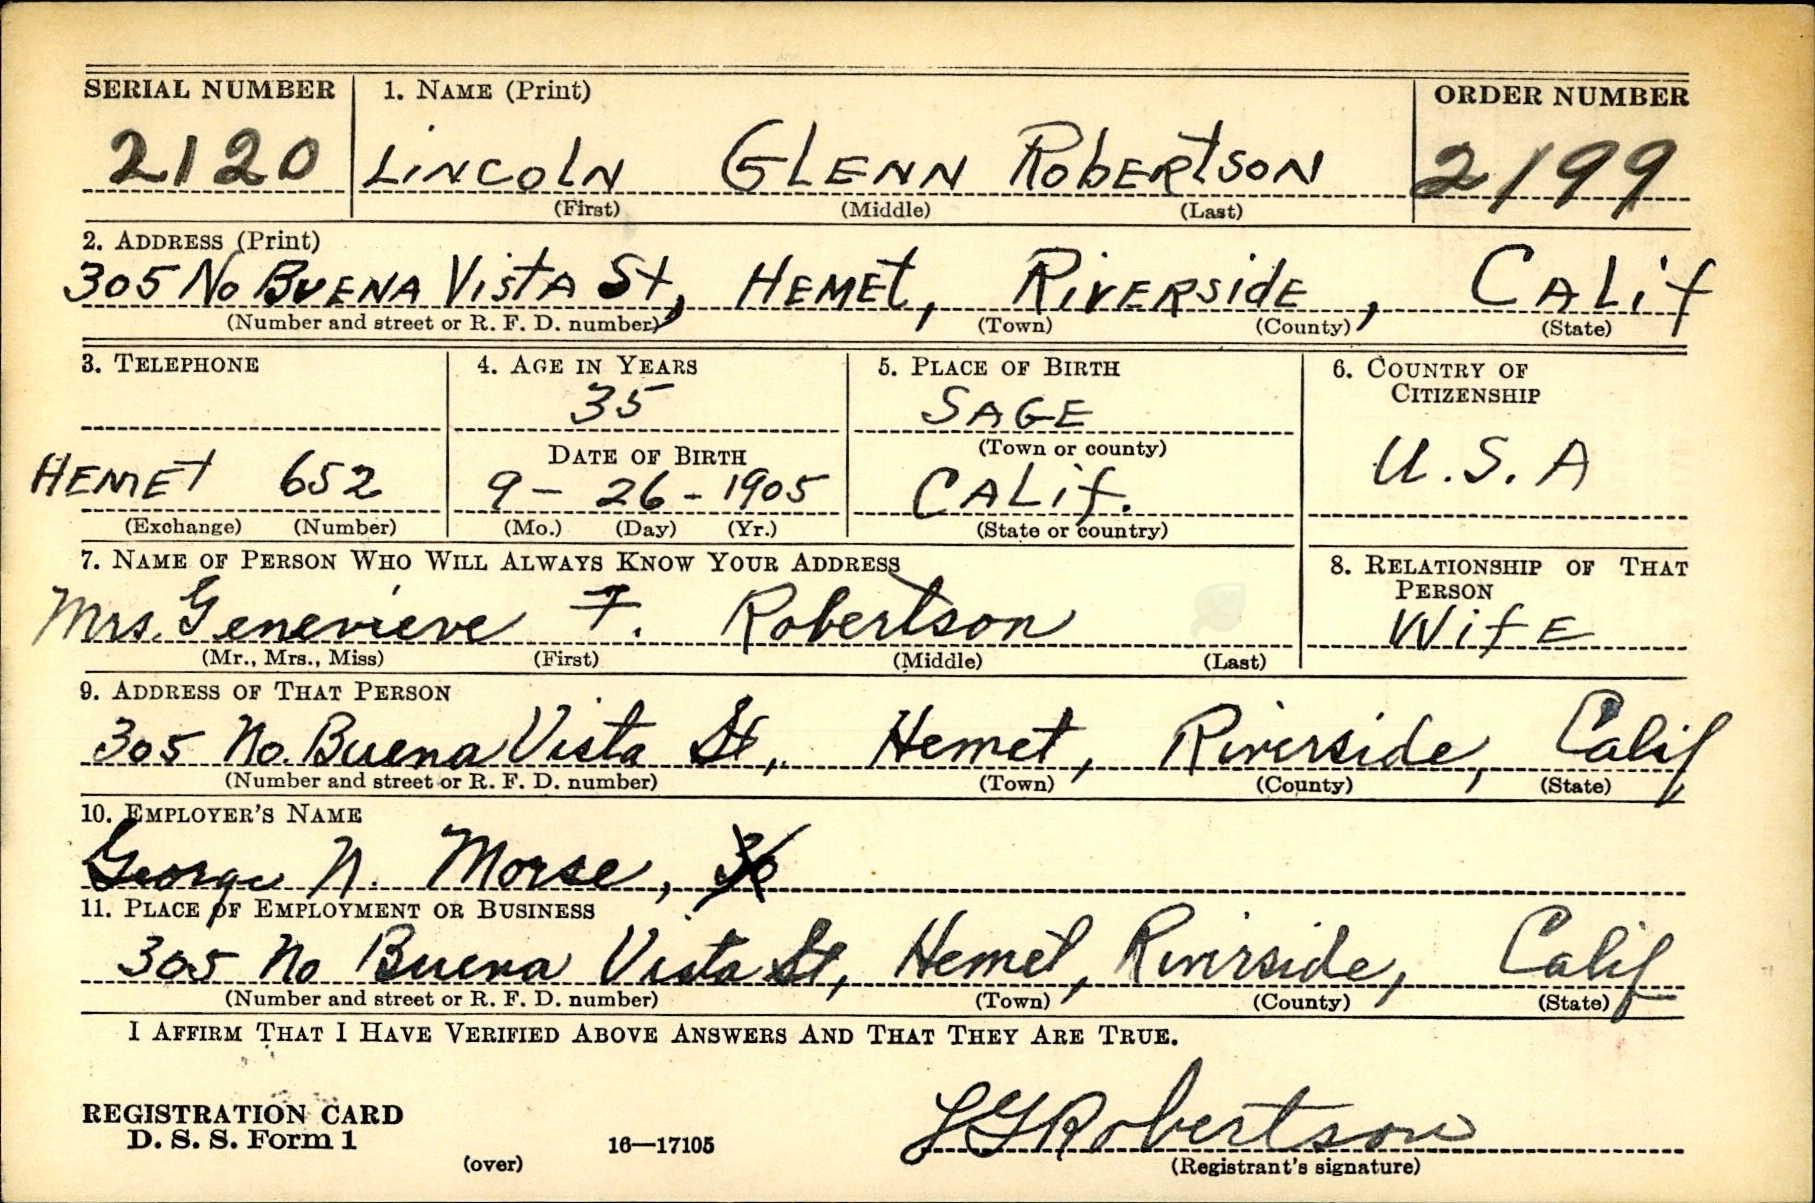 SERIAL NUMBER 1. NAME (Print) ORDER NUMBER
2120 LINCOLN GLENN ROBERTSON 2199
(First) (Middle) (Last)
2. ADDRESS (Print)
305 No BUENA VISTA St, HEMET, RIVERSIDE, CALif
(Number and street or R. F. D. number) (Town) (County) (State)
3. TELEPHONE 4. AGE IN YEARS 5. PLACE OF BIRTH 6. COUNTRY OF CITIZENSHIP
35 SAGE
DATE OF BIRTH (Town or county) U.S.A
HEMET 652 9-26-1905 CALif.
(Exchange) (Number) (Mo.) (Day) (Yr.) (State or country)
7. NAME OF PERSON WHO WILL ALWAYS KNOW YOUR ADDRESS 8. RELATIONSHIP OF THAT PERSON
Mrs. Genevieve F. Robertson WifE
(Mr., Mrs., Miss) (First) (Middle) (Last)
9. ADDRESS OF THAT PERSON
305 No. Buena Vista St, Hemet, Riverside, Calif
(Number and street or R. F. D. number) (Town) (County) (State)
10. EMPLOYER'S NAME
George N. Morse, 30
11. PLACE OF EMPLOYMENT OR BUSINESS
305 No Buena Vista St, Hemet, Riverside, Calif
(Number and street or R. F. D. number) (Town) (County) (State)
I AFFIRM THAT I HAVE VERIFIED ABOVE ANSWERS AND THAT THEY ARE TRUE.
REGISTRATION CARD LG Robertson
D. S. S. Form 1 16—17105
(over) (Registrant's signature)